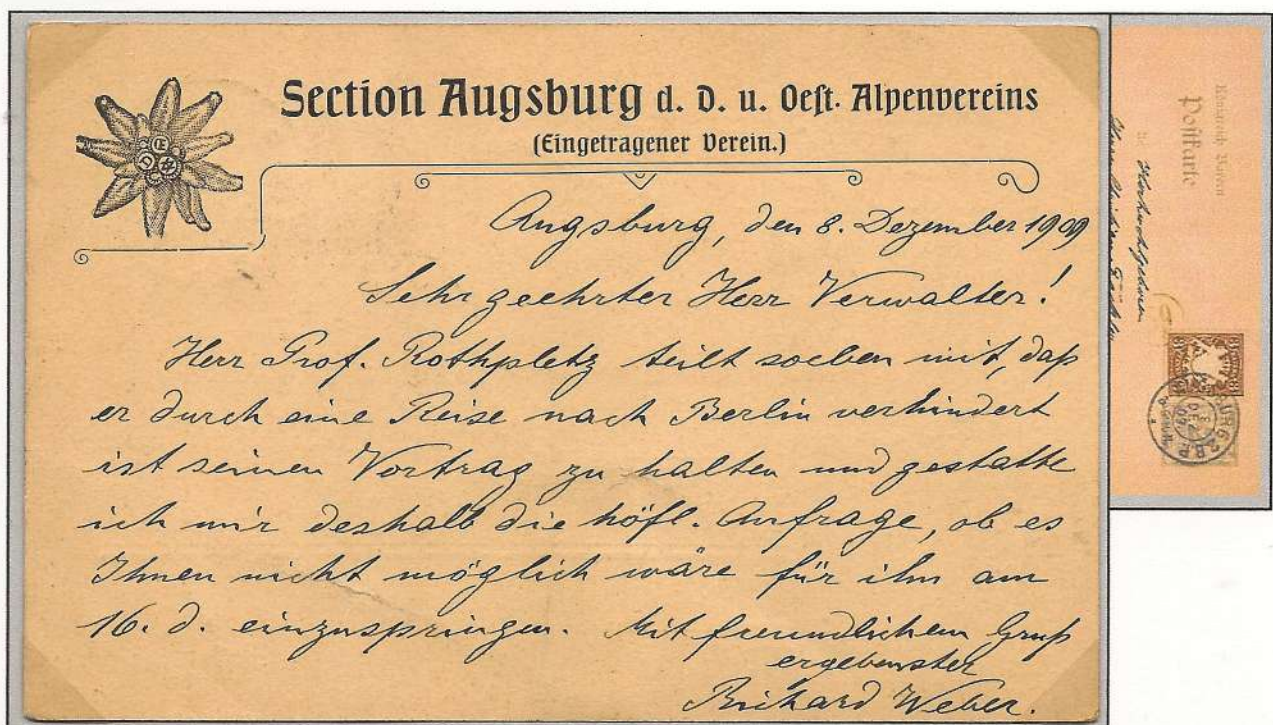 Section Augsburg d. D. u. Oest. Alpenvereins
(Eingetragener Verein.)
Augsburg, den 8. Dezember 1909
Sehr geehrter Herr Verwalter!
Herr Prof. Rothpletz teilt soeben mit, daß
er durch eine Reise nach Berlin verhindert
ist seinen Vortrag zu halten und gestatte
ich mir deshalb die höfl. Anfrage, ob es
Ihnen nicht möglich wäre für ihn am
16. d. einzuspringen. Mit freundlichem Gruß
ergebenster
Richard Weber.
Königreich Bayern
Postkarte